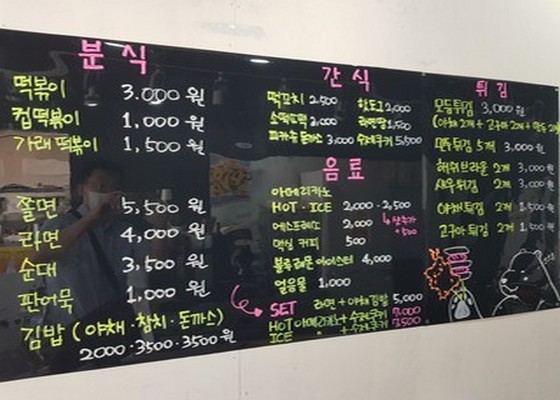 분식
떡볶이 3.000원
컵떡볶이 1,000원
가래떡볶이 1,500원
쫄면 5,500원
라면 4,000원
순대 3,500원
판어묵 1,000원
김밥 (야채·참치·돈까스)
2000·3500·3500원
간식
떡꼬치 2,500 핫도그 2,000
소떡소떡 라면땅 1,500
피카츄 돈까스 3,000 수제쿠키
음료
아메리카노
HOT·ICE 2,000-2,500
에스프레소 2,000 샷추가
믹싱 커피 500 +500
블루레몬 아이스티 4,000
얼음물 1,000
SET 라면+야채김밥 5,000
HOT 아메리카노+수제쿠키 7,000
ICE +수제쿠키 7,500
튀김
모듬튀김 3,000원
(야채2개+고구마2개+
모듬튀김 5개 3,000원
해쉬브라운 2개 3,000
새우튀김 2개 3,000
야채튀김 2개 1,500
고구마튀김 2개 1,500